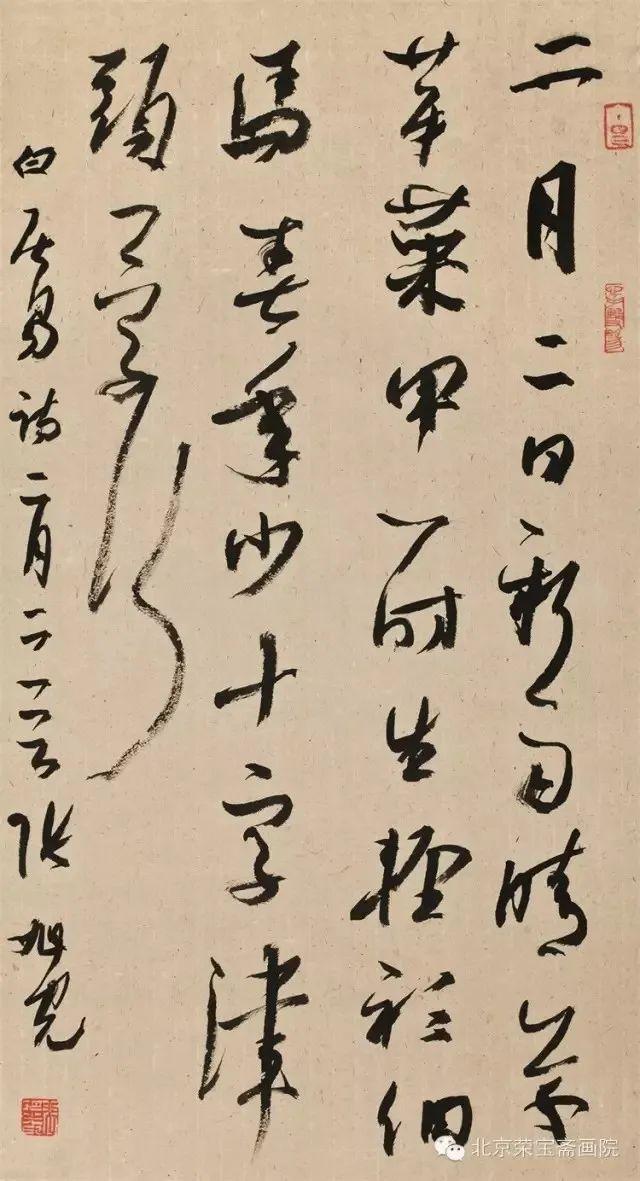 二月二日新雨晴草
芽菜甲一时生輕衫細
馬春年少十字津
頭一字行
白居易诗二月二 张旭光
北京荣宝斋画院